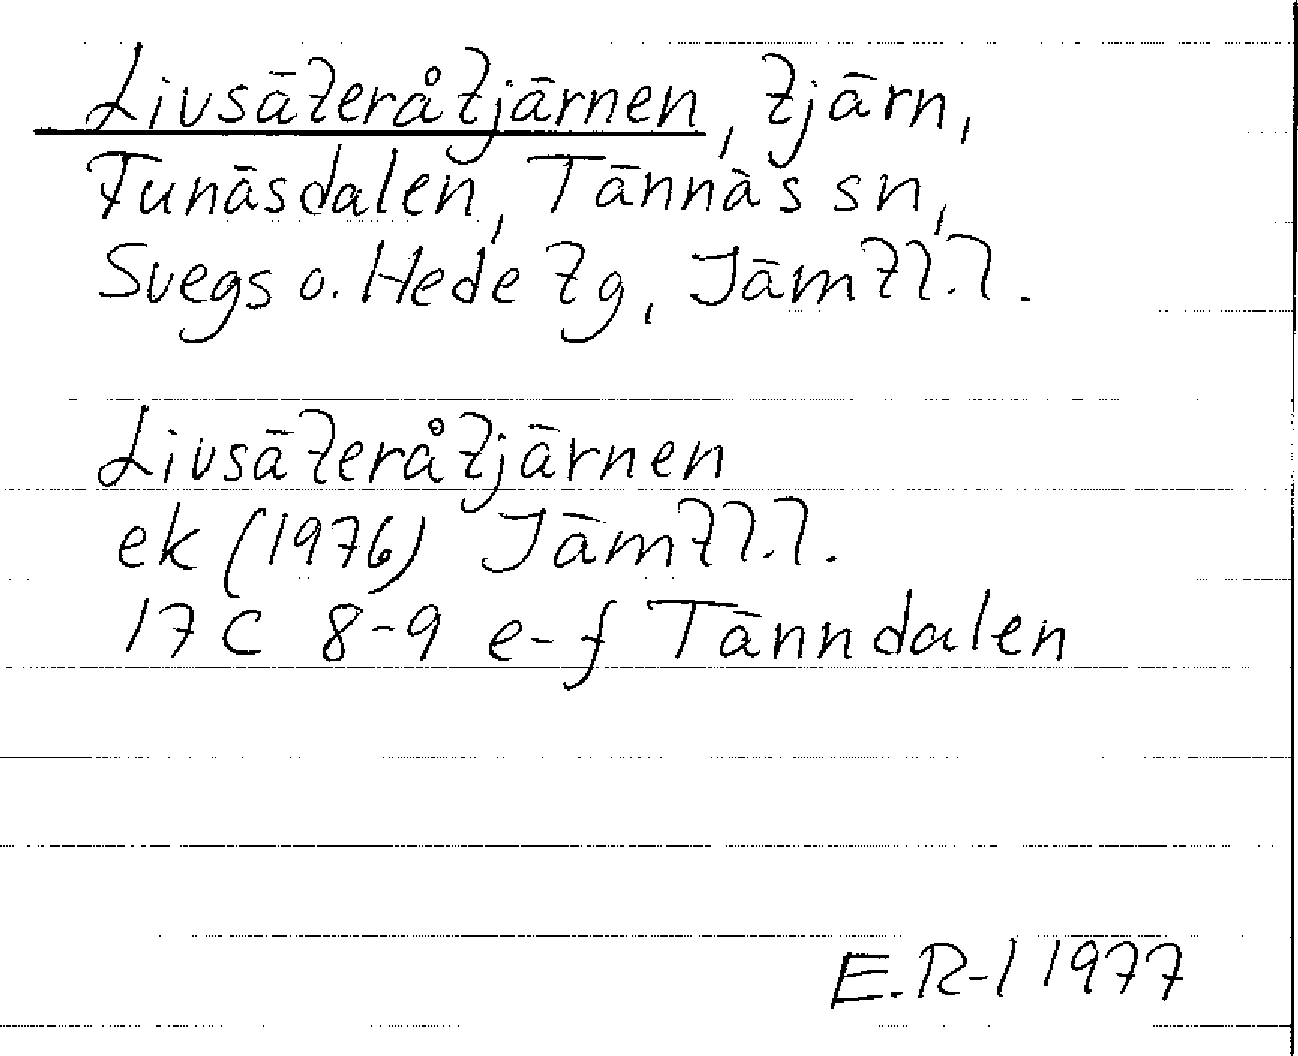 Livsäteråtjärnen, tjärn,
Funäsdalen, Tännäs sn,
Svegs o. Hede tg, Jämtl.l.
Livsäteråtjärnen
ek (1976) Jämtl.l.
17C 8-9 e-f Tänndalen
E.R-l 1977